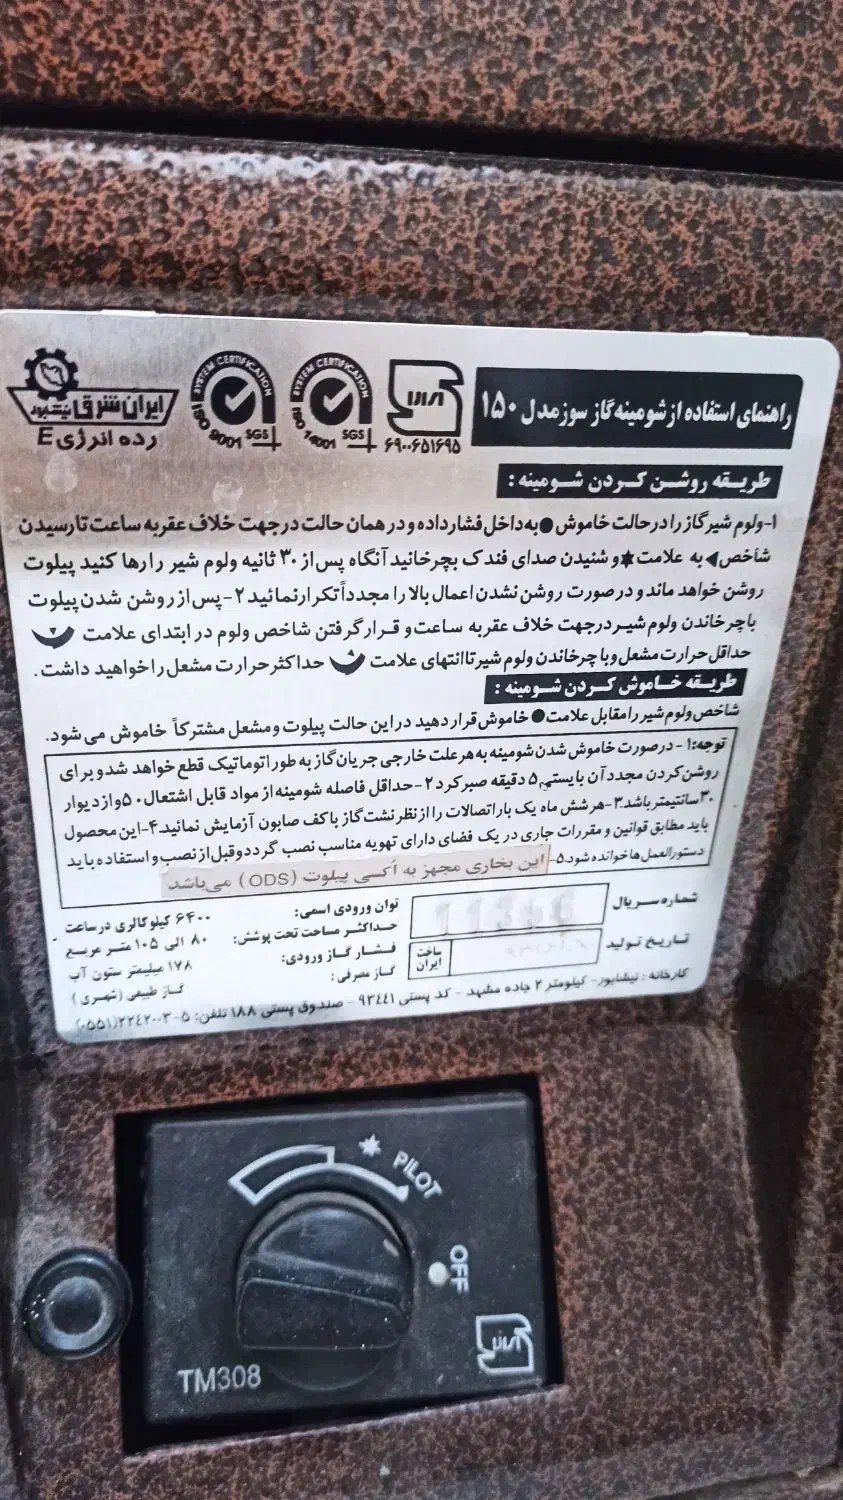 راهنمای استفاده از شومینه گاز سوز مدل ۱۵۰
ایران شرق نیشابور
رده انرژی E
SYSTEM CERTIFICATION
ISO 9001
SGS
SYSTEM CERTIFICATION
ISO 14001
SGS
۶۹۰۰۶۵۱۶۹۵
طریقه روشن کردن شومینه :
۱-ولوم شیر گاز را در حالت خاموش ● به داخل فشار داده و در همان حالت در جهت خلاف عقربه ساعت تا رسیدن
شاخص ◀ به علامت ✱ و شنیدن صدای فندک بچرخانید آنگاه پس از ۳۰ ثانیه ولوم شیر را رها کنید پیلوت
روشن خواهد ماند و در صورت روشن نشدن اعمال بالا را مجدداً تکرار نمائید ۲- پس از روشن شدن پیلوت
با چرخاندن ولوم شیر در جهت خلاف عقربه ساعت و قرار گرفتن شاخص ولوم در ابتدای علامت
حداقل حرارت مشعل و با چرخاندن ولوم شیر تا انتهای علامت حداکثر حرارت مشعل را خواهید داشت .
طریقه خاموش کردن شومینه :
شاخص ولوم شیر را مقابل علامت ● خاموش قرار دهید در این حالت پیلوت و مشعل مشترکاً خاموش می شود.
توجه: ۱- در صورت خاموش شدن شومینه به هر علت خارجی جریان گاز به طور اتوماتیک قطع خواهد شد و برای
روشن کردن مجدد آن بایستی ۵ دقیقه صبر کرد ۲- حداقل فاصله شومینه از مواد قابل اشتعال ۵۰ و از دیوار
۳۰ سانتیمتر باشد. ۳- هر شش ماه یک بار اتصالات را از نظر نشت گاز با کف صابون آزمایش نمائید. ۴- این محصول
باید مطابق قوانین و مقررات جاری در یک فضای دارای تهویه مناسب نصب گردد و قبل از نصب و استفاده باید
دستورالعمل ها خوانده شود. ۵- این بخاری مجهز به اکسی پیلوت (ODS) می باشد
شماره سریال
تاریخ تولید
ساخت ایران
توان ورودی اسمی: ۶۴۰۰ کیلو کالری در ساعت
حداکثر مساحت تحت پوشش: ۸۰ الی ۱۰۵ متر مربع
فشار گاز ورودی: ۱۷۸ میلیمتر ستون آب
گاز مصرفی: گاز طبیعی (شهری)
کارخانه : نیشابور- کیلومتر ۲ جاده مشهد - کد پستی ۹۳۴۴۱ - صندوق پستی ۱۸۸ تلفن: ۵-۲۲۴۲۰۰۳(۰۵۵۱)
PILOT
OFF
TM308